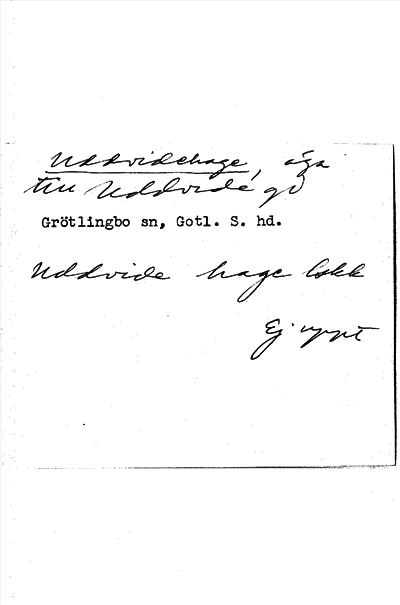 Uddvidehage, äga
till Uddvide gd
Grötlingbo sn, Gotl. S. hd.
Uddvide hage
Ej uppt